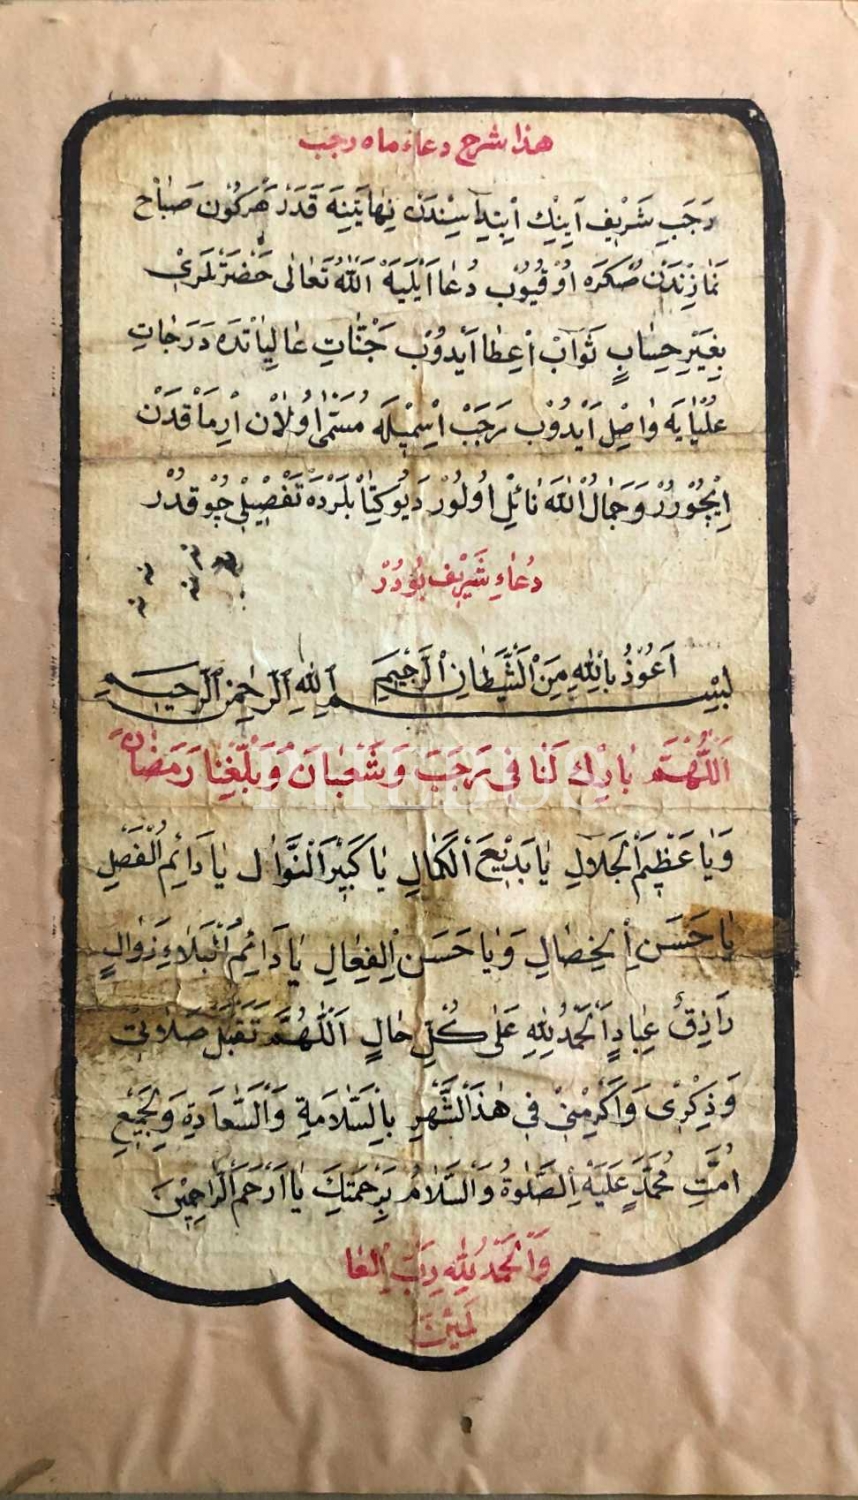 هذا شرح دعاء ماه رجب
رَجَبِ شَرِيف آيِنِكْ اِبْتِدَاسِنْدَنْ نِهَايَتِنَه قَدَرْ هَركُونْ صَبَاح
نَمَازِنْدَنْ صُكَرَه اُوقُيُوبْ دُعَا اَيْلَيَه اَللّٰهُ تَعَالٰى حَضْرَتْلَرِى
بِغَيْرِ حِسَابٍ ثَوَابْ اِعْطَا اَيْدُوبْ جَنَّاتِ عَالِيَاتْدَه دَرَجَاتِ
عُلْيَايَه وَاصِلْ اَيْدُوبْ رَجَبْ اِسْمِيْلَه مُسَمّٰى اُولَانْ اِرْمَاقْدَنْ
اِيچُورُرْ وَجَمَالُ اللّٰهَ نَائِلْ اُولُورْ دَيُو كِتَابْلَرْدَه تَفْصِيلِى چُوقْدُرْ
دُعَاءِ شَرِيف بُودُرْ
اَعُوذُ بِاللّٰهِ مِنَ الشَّيْطَانِ الرَّجِيمِ
بِسْمِ اللّٰهِ الرَّحْمٰنِ الرَّحِيمِ
اَللّٰهُمَّ بَارِكْ لَنَا فِى رَجَبَ وَشَعْبَانَ وَبَلِّغْنَا رَمَضَانَ
وَيَا عَظِيمَ الْجَلَالِ يَا بَدِيْعَ الْكَمَالِ يَا كَبِيْرَ النَّوَالِ يَا دَائِمُ الْفَضْلِ
يَا حَسَنَ الْخِصَالِ وَيَا حَسَنَ الْفِعَالِ يَا دَائِمُ الْبَلَاءِ زَوَالٍ
رَازِقُ عِبَادٍ اَلْحَمْدُ لِلّٰهِ عَلٰى كُلِّ حَالٍ اَللّٰهُمَّ تَقَبَّلْ صَلَاتِى
وَذِكْرِى وَاَكْرِمْنِىْ فِى هٰذَا الشَّهْرِ بِالسَّلَامَةِ وَالسَّعَادَةِ وَلِجَمِيْعِ
اُمَّتِ مُحَمَّدٍ عَلَيْهِ الصَّلٰوةُ وَالسَّلَامُ بِرَحْمَتِكَ يَا اَرْحَمَ الرَّاحِمِيْنَ
وَالْحَمْدُ لِلّٰهِ رَبِّ الْعَا
لَمِيْنَ